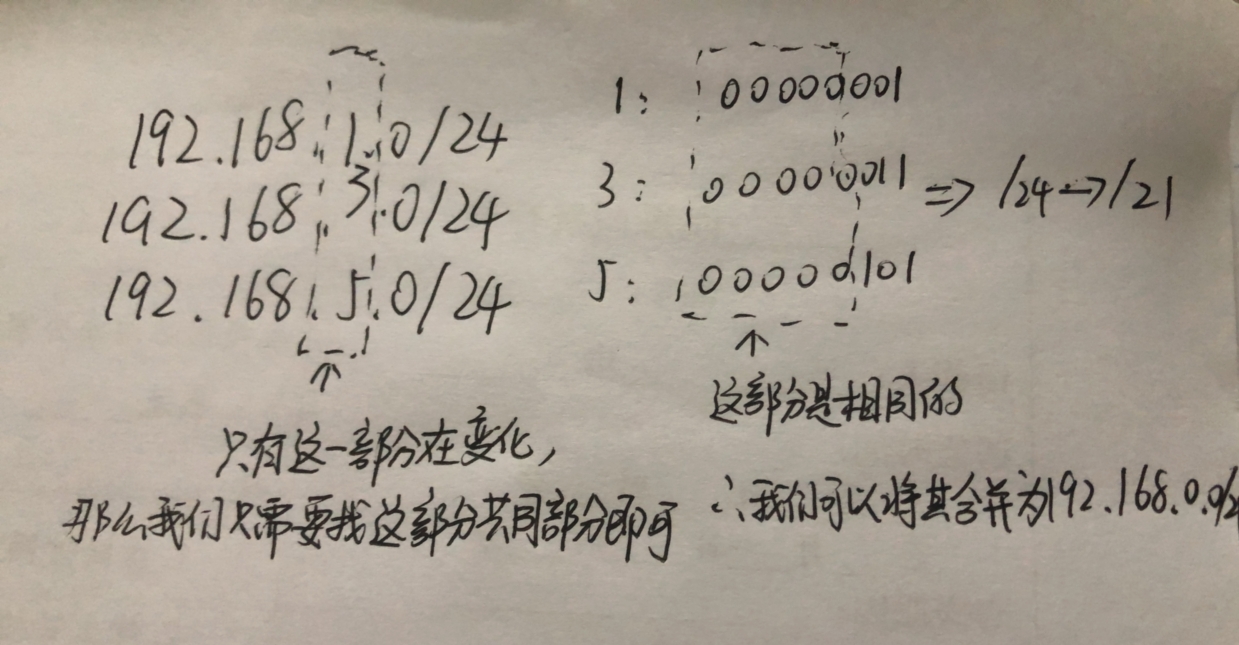 192.168.1.0/24
192.168.3.0/24
192.168.5.0/24
只有这一部分在变化,
那么我们只需要找这部分共同部分即可
1: 00000001
3: 00000011 => /24→/21
5: 00000101
这部分是相同的
∴我们可以将其合并为192.168.0.0/2